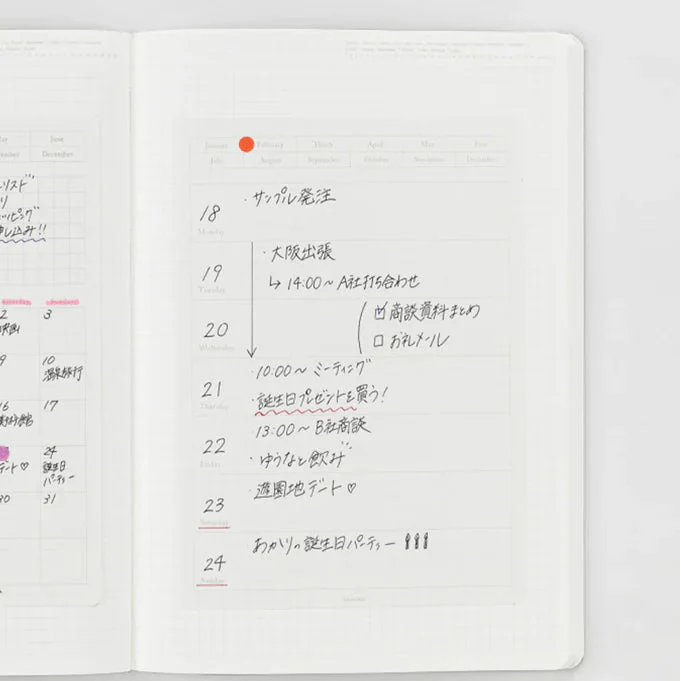 June
December
映画
3
10
温泉旅行
17
24
誕生日
パーティー
31
January
February
March
April
May
June
July
August
September
October
November
December
18
Monday
・サンプル発注
19
Tuesday
・大阪出張
↳ 14:00〜A社打ち合わせ
20
Wednesday
☑ 商談資料まとめ
☐ お礼メール
21
Thursday
・10:00〜ミーティング
・誕生日プレゼントを買う!
22
Friday
13:00〜B社商談
・ゆうなと飲み
23
Saturday
・遊園地デート♡
24
Sunday
あかりの誕生日パーティー